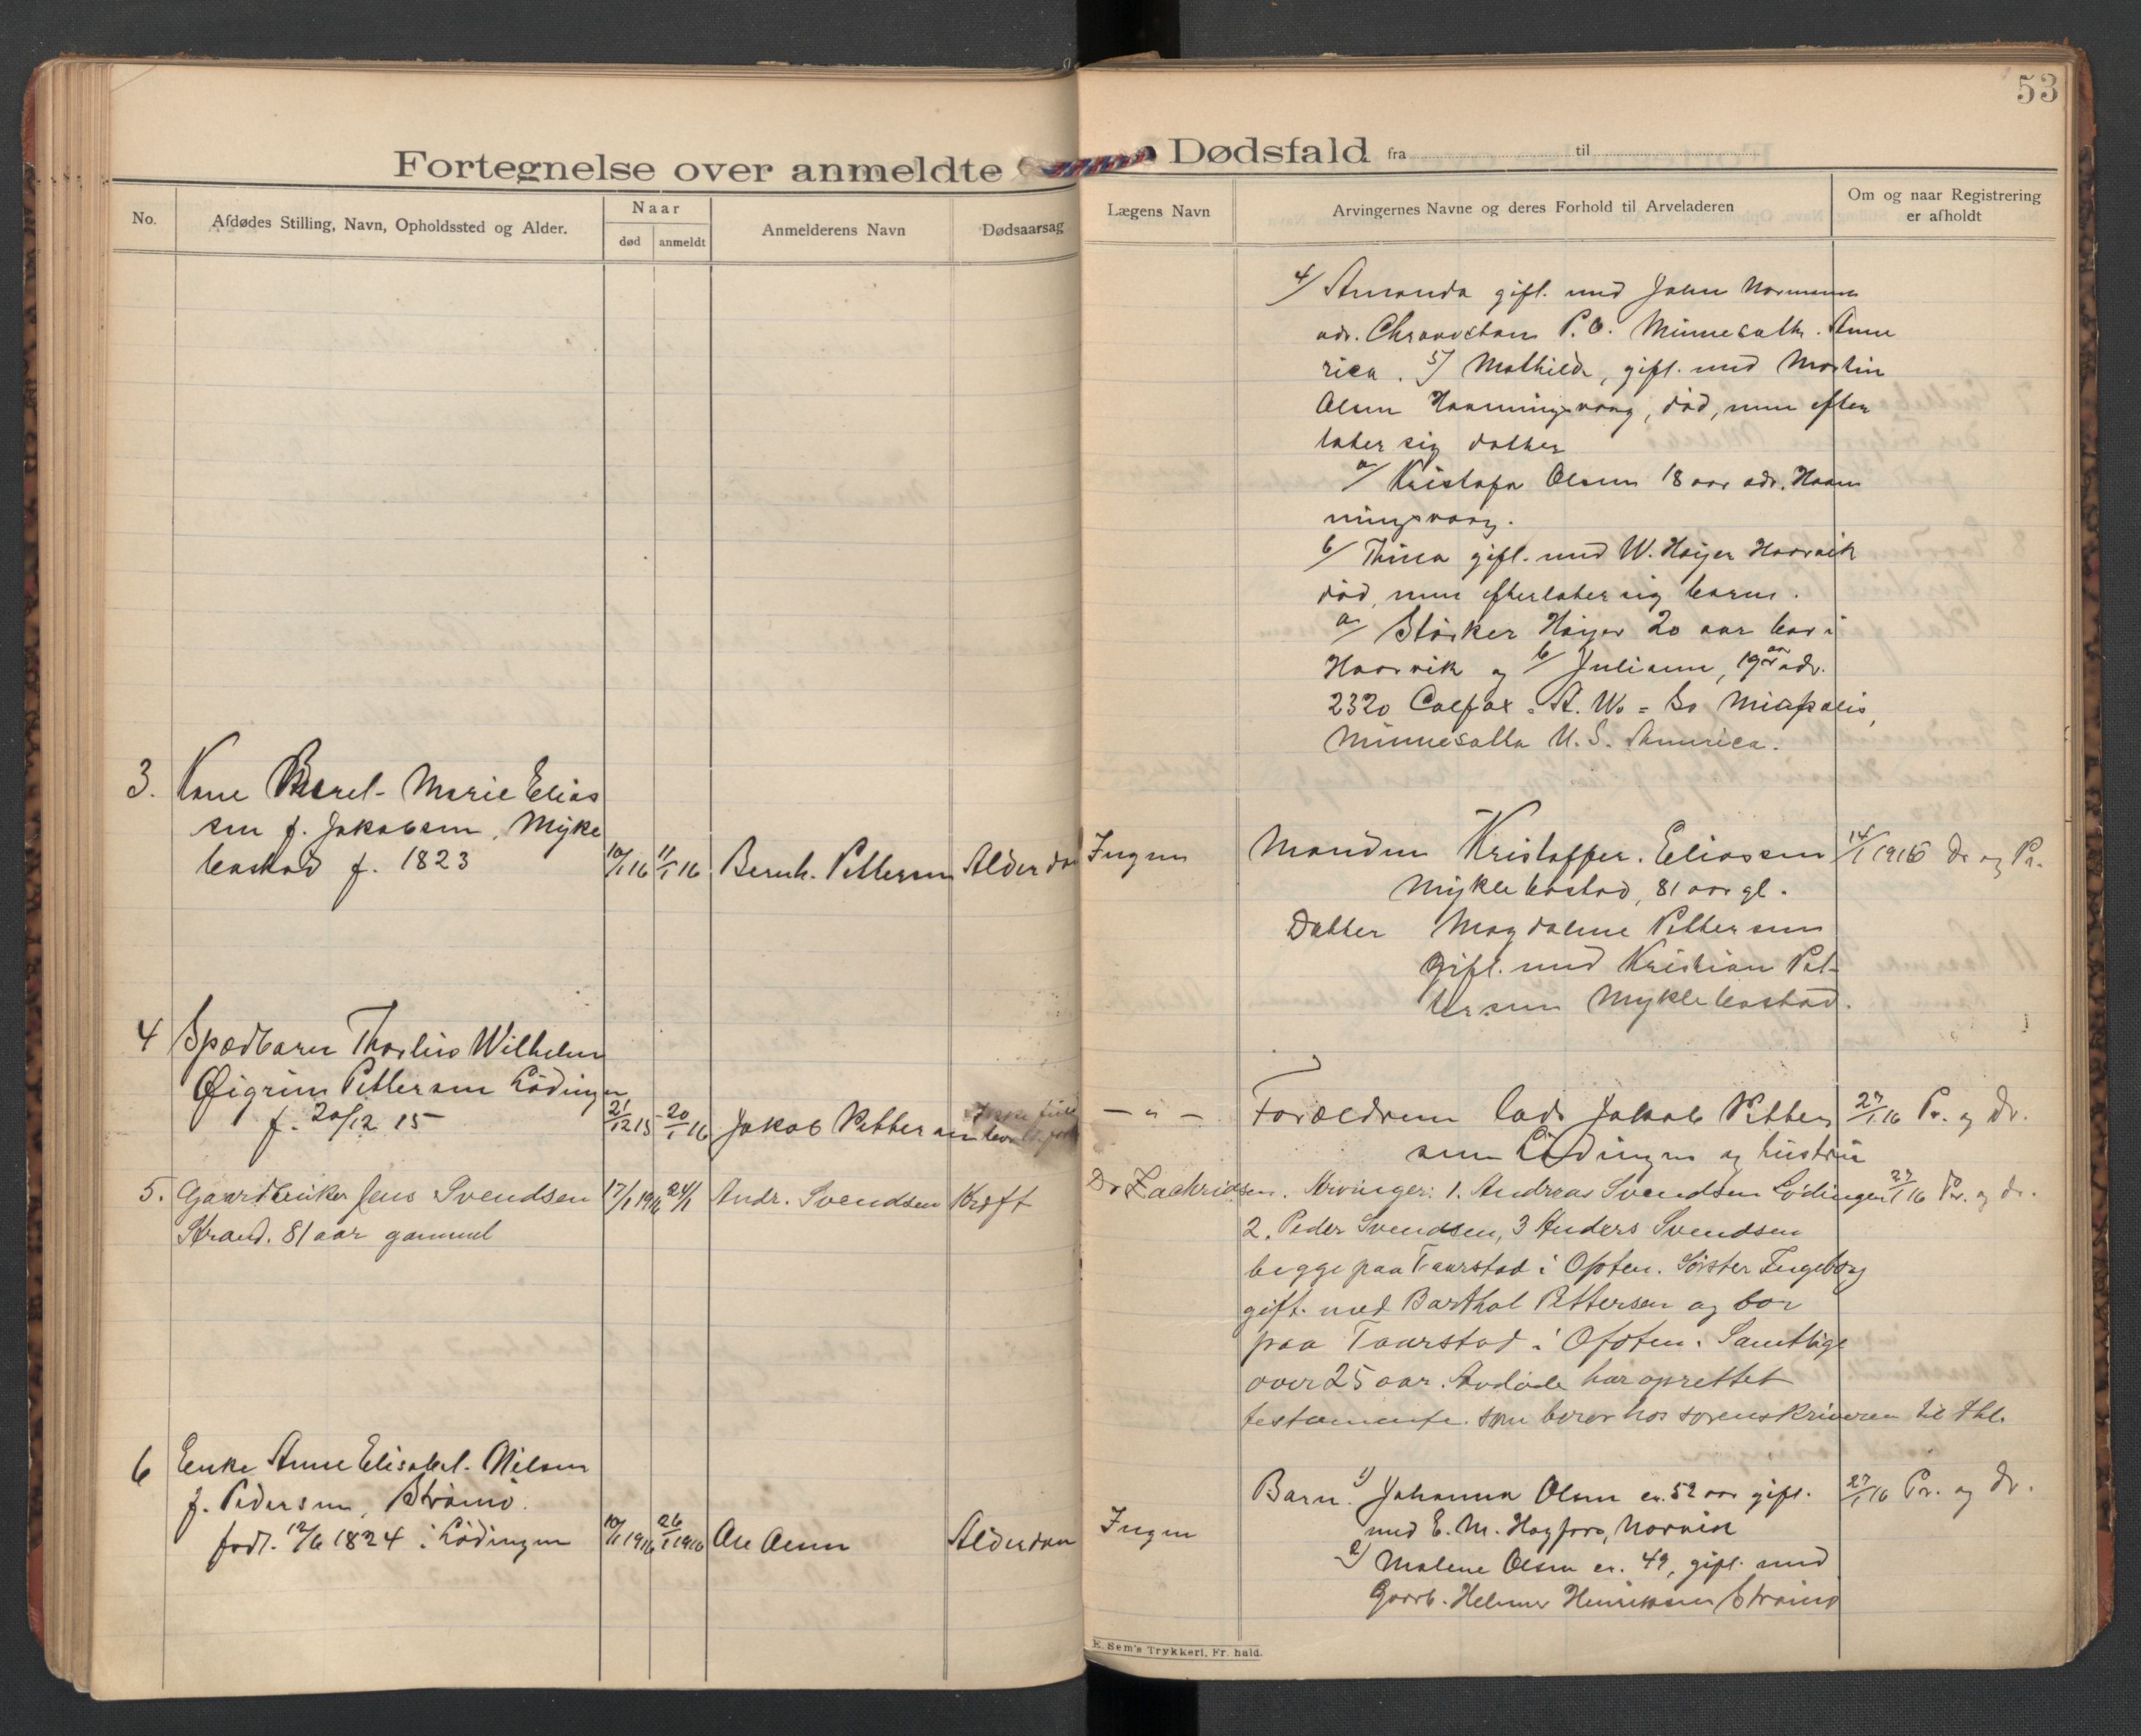 53
Fortegnelse over anmeldte Dødsfald fra til
No.
Afdødes Stilling, Navn, Opholdssted og Alder.
Naar
død
anmeldt
Anmelderens Navn
Dødsaarsag
Lægens Navn
Arvingernes Navne og deres Forhold til Arveladeren
Om og naar Registrering
er afholdt
4/ Amanda gift. med John Normann
adr. P.O. Minnesath. Ame
rica. 5/ Mathilde, gift. med Martin
Olsen Haaningsvaag, død, men efter
later sig datter
a/ Kristofa Olsen 18 aar adr. Haan
ningsvaag.
6/ Thina gift. med W. Høyer Haarvik
død, men efterlater sig barn.
a/ Stärker Høyer 20 aar bor i
Haarvik og b/ Juliane, 19 aar adr.
2320 Colfax. St. Wo = So Miapolis,
Minnesotta U. S. America.
3. Kone Marie Elias
sen f. Jakobsen, Mykle
bostad f. 1823
10/1 16
11/1 16
Bernh. Pettersen
Alderdom
Ingen
Manden Kristoffer. Eliassen
Myklebostad, 81 aar gl.
Datter Magdalene Pettersen
gift. med Kristian Pet-
tersen Myklebostad.
14/1 1916 Dr og Pr.
4 Spædbarn Thorleis Wilhelm
Øigrim Pettersen Lödingen
f. 20/12 15
21/12 15
20/1 16
Jakob Pettersen
Ikke
— " —
Forældrene Lods Jakob Petter
sen Lödingen og hustru
27/1 16 Pr. og Dr.
5. Gaardbruker Jens Svendsen
Strand. 81 aar gammel
17/1 1916
24/1
Andr. Svendsen
Kræft
Dr Zachriasen.
Arvinger: 1. Andreas Svendsen Lödingen
2. Peder Svendsen, 3 Anders Svendsen
begge paa Taarstad i Ofoten. Søster Ingeborg
gift. med Barthol Pettersen og bor
paa Taarstad i Ofoten. Samtlige
over 25 aar. Avdøde har oprettet
testamente som beror hos sorenskriveren til thl.
27/1 16 Pr. og dr.
6 Enke Anne Elisabet. Nilsen
f. Pedersen, Strømö.
född. 12/6 1824 i Lödingen
10/1 1916
26/1 1916
Ole Olsen
Alderdom
Ingen
Barn. 1) Johanna Olsen er. 52 aar gift.
med E. M. Hagfors, Narvik
2) Malene Olsen er. 49, gift. med
Gaarb. Helmer Henriksen Strömö
27/1 16 Pr. og Dr.
E. Sem's Trykkeri, Fr. hald.